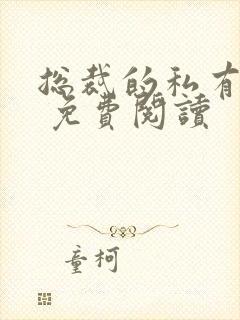 总裁的私有
免費閱讀
童柯